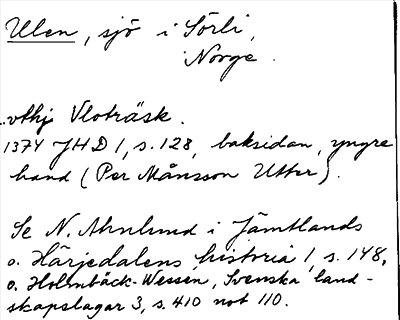 Ulen, sjö i Sörli,
Norge.
Vloträsk.
1374 JHD 1, s. 128, baksidan, yngre
hand (Per Månsson Utter).
Se N. Ahnlund i Jämtlands
o. Härjedalens historia 1, s. 148,
o. Holmbäck-Wessén, Svenska land-
skapslagar 3, s. 410 not 110.